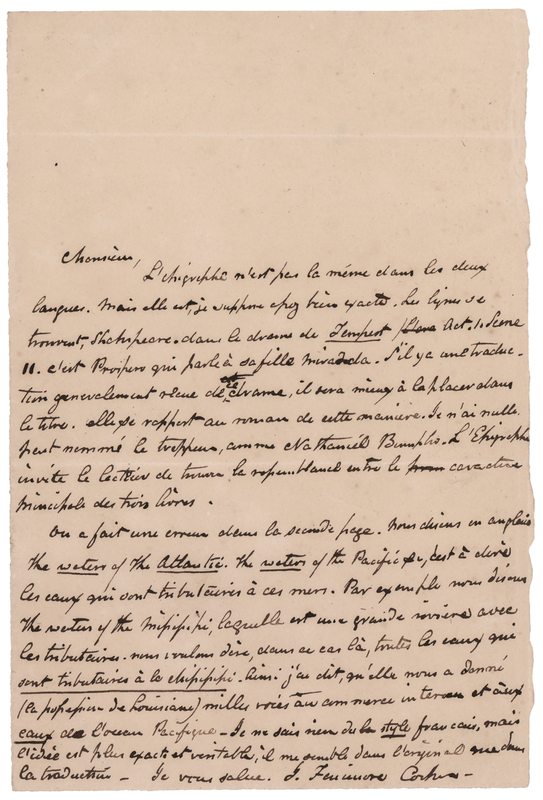 Monsieur,
L'épigraphe n'est pas la même dans les deux
langues. Mais elle est, je suppose assez bien exacte. Les lignes se
trouvent, Shakespeare. dans le drame de Tempest Act. 1. Scene
11. c'est Prospero qui parle à sa fille Miranda. S'il y a une traduc-
tion generalement reçue de ce drame, il sera mieux à la placer dans
le titre. elle se rapport au roman de cette manière. Je n'ai nulle
part nommé le trappeur, comme Nathaniél Bumppo. L'Epigraphe
invite le lecteur de trouver la resemblance entre le caractère
principale des trois livres.
On a fait une erreur dans la seconde page. Nous disons en anglais
The waters of the Atlantic. The waters of the Pacific &c, c'est à dire
les eaux qui sont tributaires à ces mers. Par exemple nous disons
The waters of the Missisipi, laquelle est une grande rivière avec
les tributaires. nous voulons dire, dans ce cas là, toutes les eaux qui
sont tributaires à la Missisipi. Ainsi j'ai dit, qu'elle nous a donné
(la possession de Louisiane) milles voies au commerce interne et aux
eaux de l'ocean Pacifique. Je ne sais rien du style francais, mais
l'idée est plus exacte et veritable, il me semble dans l'original que dans
la traduction - Je vous salue. J. Fenimore Cooper -